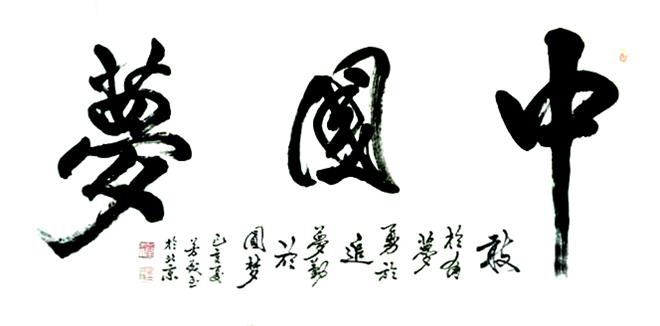 中國夢
敢
於有
夢
勇於
追
夢勤
於
圆梦
己亥夏
於北京